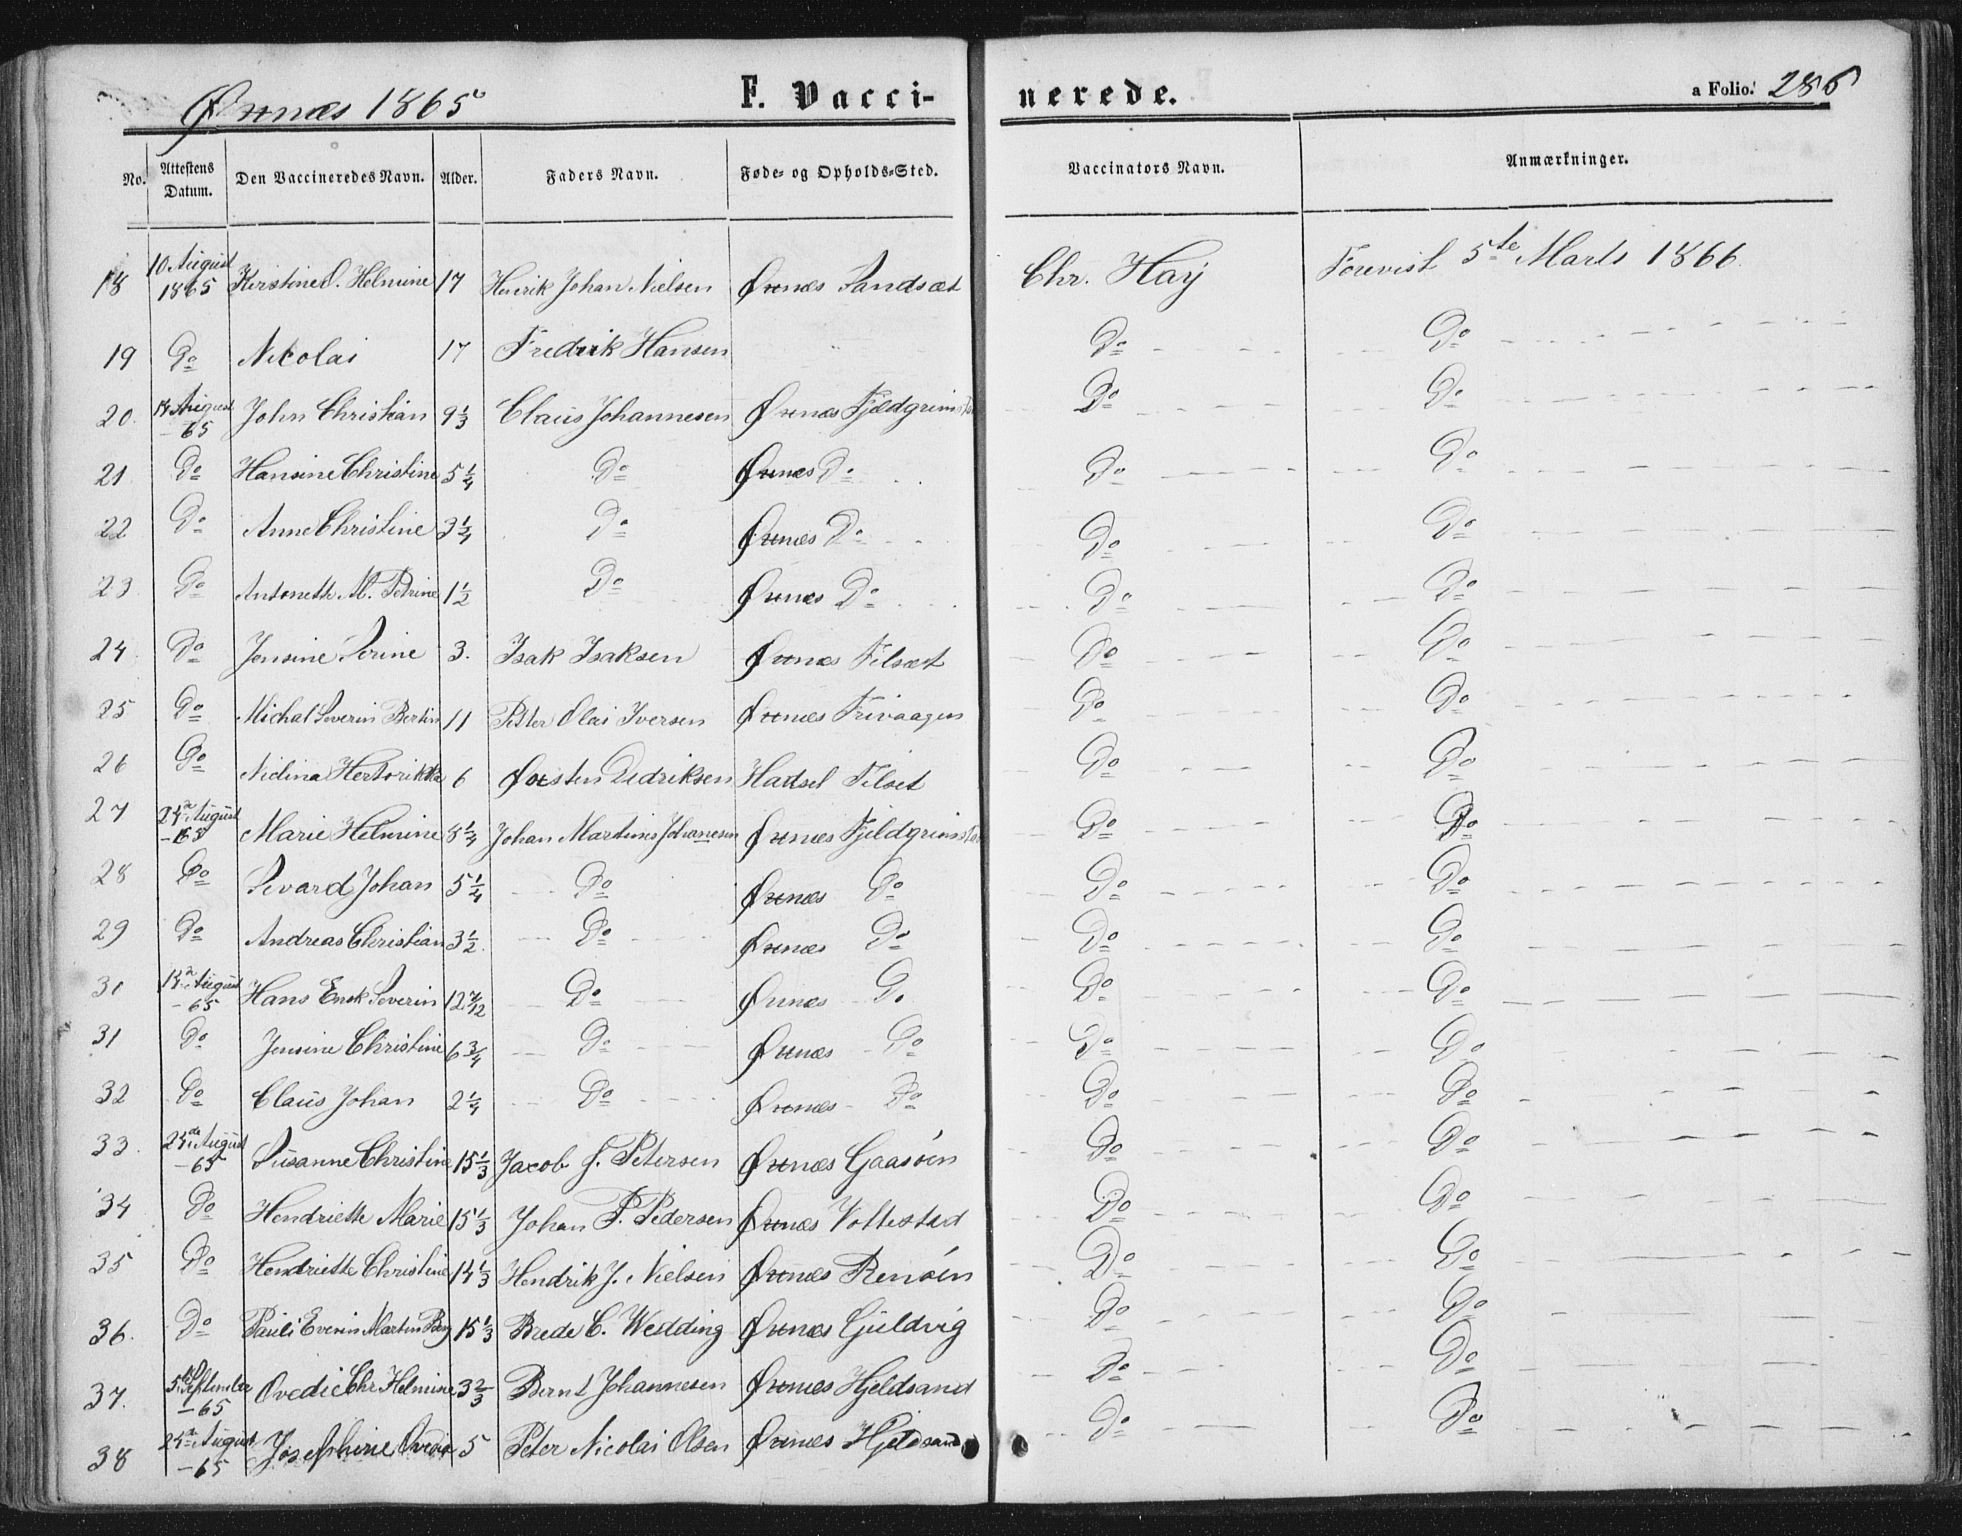 Øxnæs 1865 F. Vaccinerede. a Folio. 286
No. Attestens Datum. Den Vaccineredes Navn. Alder. Faders Navn. Føde- og Opholds-Sted. Vaccinators Navn. Anmærkninger.
18 10 August 1865 Kerstine O. Helmine 17 Henrik Johan Nielsen Øxnæs Sandsæt Chr. Hay Forevist 5te Marts 1866
19 Do Nicolai 17 Fredrik Hansen Do Do
20 14 August -65 John Christian 9 1/3 Claus Johannesen Øxnæs Fjeldgrims Do Do
21 Do Hansine Christine 5 1/4 Do Øxnæs Do Do Do
22 Do Anne Christine 3 1/4 Do Øxnæs Do Do Do
23 Do Antonette M. Petrine 1 1/2 Do Øxnæs Do Do Do
24 Do Jensine Serine 3. Isak Isaksen Øxnæs Tilsæt Do Do
25 Do Michal Severin Bertin 11 Petter Olai Iversen Øxnæs Frivaagen Do Do
26 Do Nidina 6 Didriksen Hadsel Tilset Do Do
27 24de August -65 Marie Helmine 8 1/4 Johan Martines Johanesen Øxnæs Fjeldgrims Do Do
28 Do Sevard Johan 5 1/4 Do Øxnæs Do Do Do
29 Do Andreas Christian 3 1/2. Do Øxnæs Do Do Do
31 14de August -65 Hans Enok Severin 12 7/12 Do Øxnæs Do Do Do
31 Do Jensine Christine 6 3/4 Do Øxnæs Do Do Do
32 Do Claus Johan 2 1/4 Do Øxnæs Do Do Do
33 24de August -65 Susanne Christine 15 1/3 Jacob J. Petersen Øxnæs Gaasöen Do Do
34 Do Hendriette Marie 15 1/3 Johan P. Pedersen Øxnæs Vottestad Do Do
35 Do Hendriette Christine 14 1/3 Hendrik J. Nielsen Øxnæs Rensöen Do Do
36. Do Pauli Evenin Martin Berg 15 1/3 Brede C. Wedding Øxnæs Guldvig Do Do
37. 5te September -65 Ovedie Chr. Helmine 3 2/3 Bernt Johannesen Øxnæs Hjeldsand Do Do
38 24de August -65 Josephine Ovedia 5 Peter Nicolai Olsen Øxnæs Hjeldsand Do Do